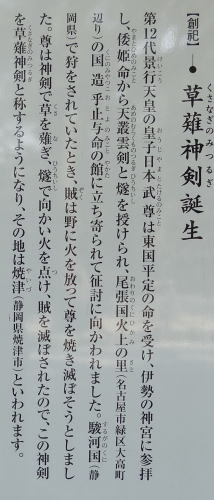 【創祀】
草薙神剣誕生
くさなぎのみつるぎ
第12代景行天皇の皇子日本武尊は東国平定の命を受け、伊勢の神宮に参拝
し、倭姫命から天叢雲剣と燧を授けられ、尾張国火上の里(名古屋市緑区大高町
辺り)の国造、乎止与命の館に立ち寄られて征討に向かわれました。駿河国(静
岡県)で狩をされていたとき、賊は野に火を放って尊を焼き滅ぼそうとしまし
た。尊は神剣で草を薙ぎ、燧で向かい火を点け、賊を滅ぼされたので、この神剣
を草薙神剣と称するようになり、その地は焼津(静岡県焼津市)といわれます。